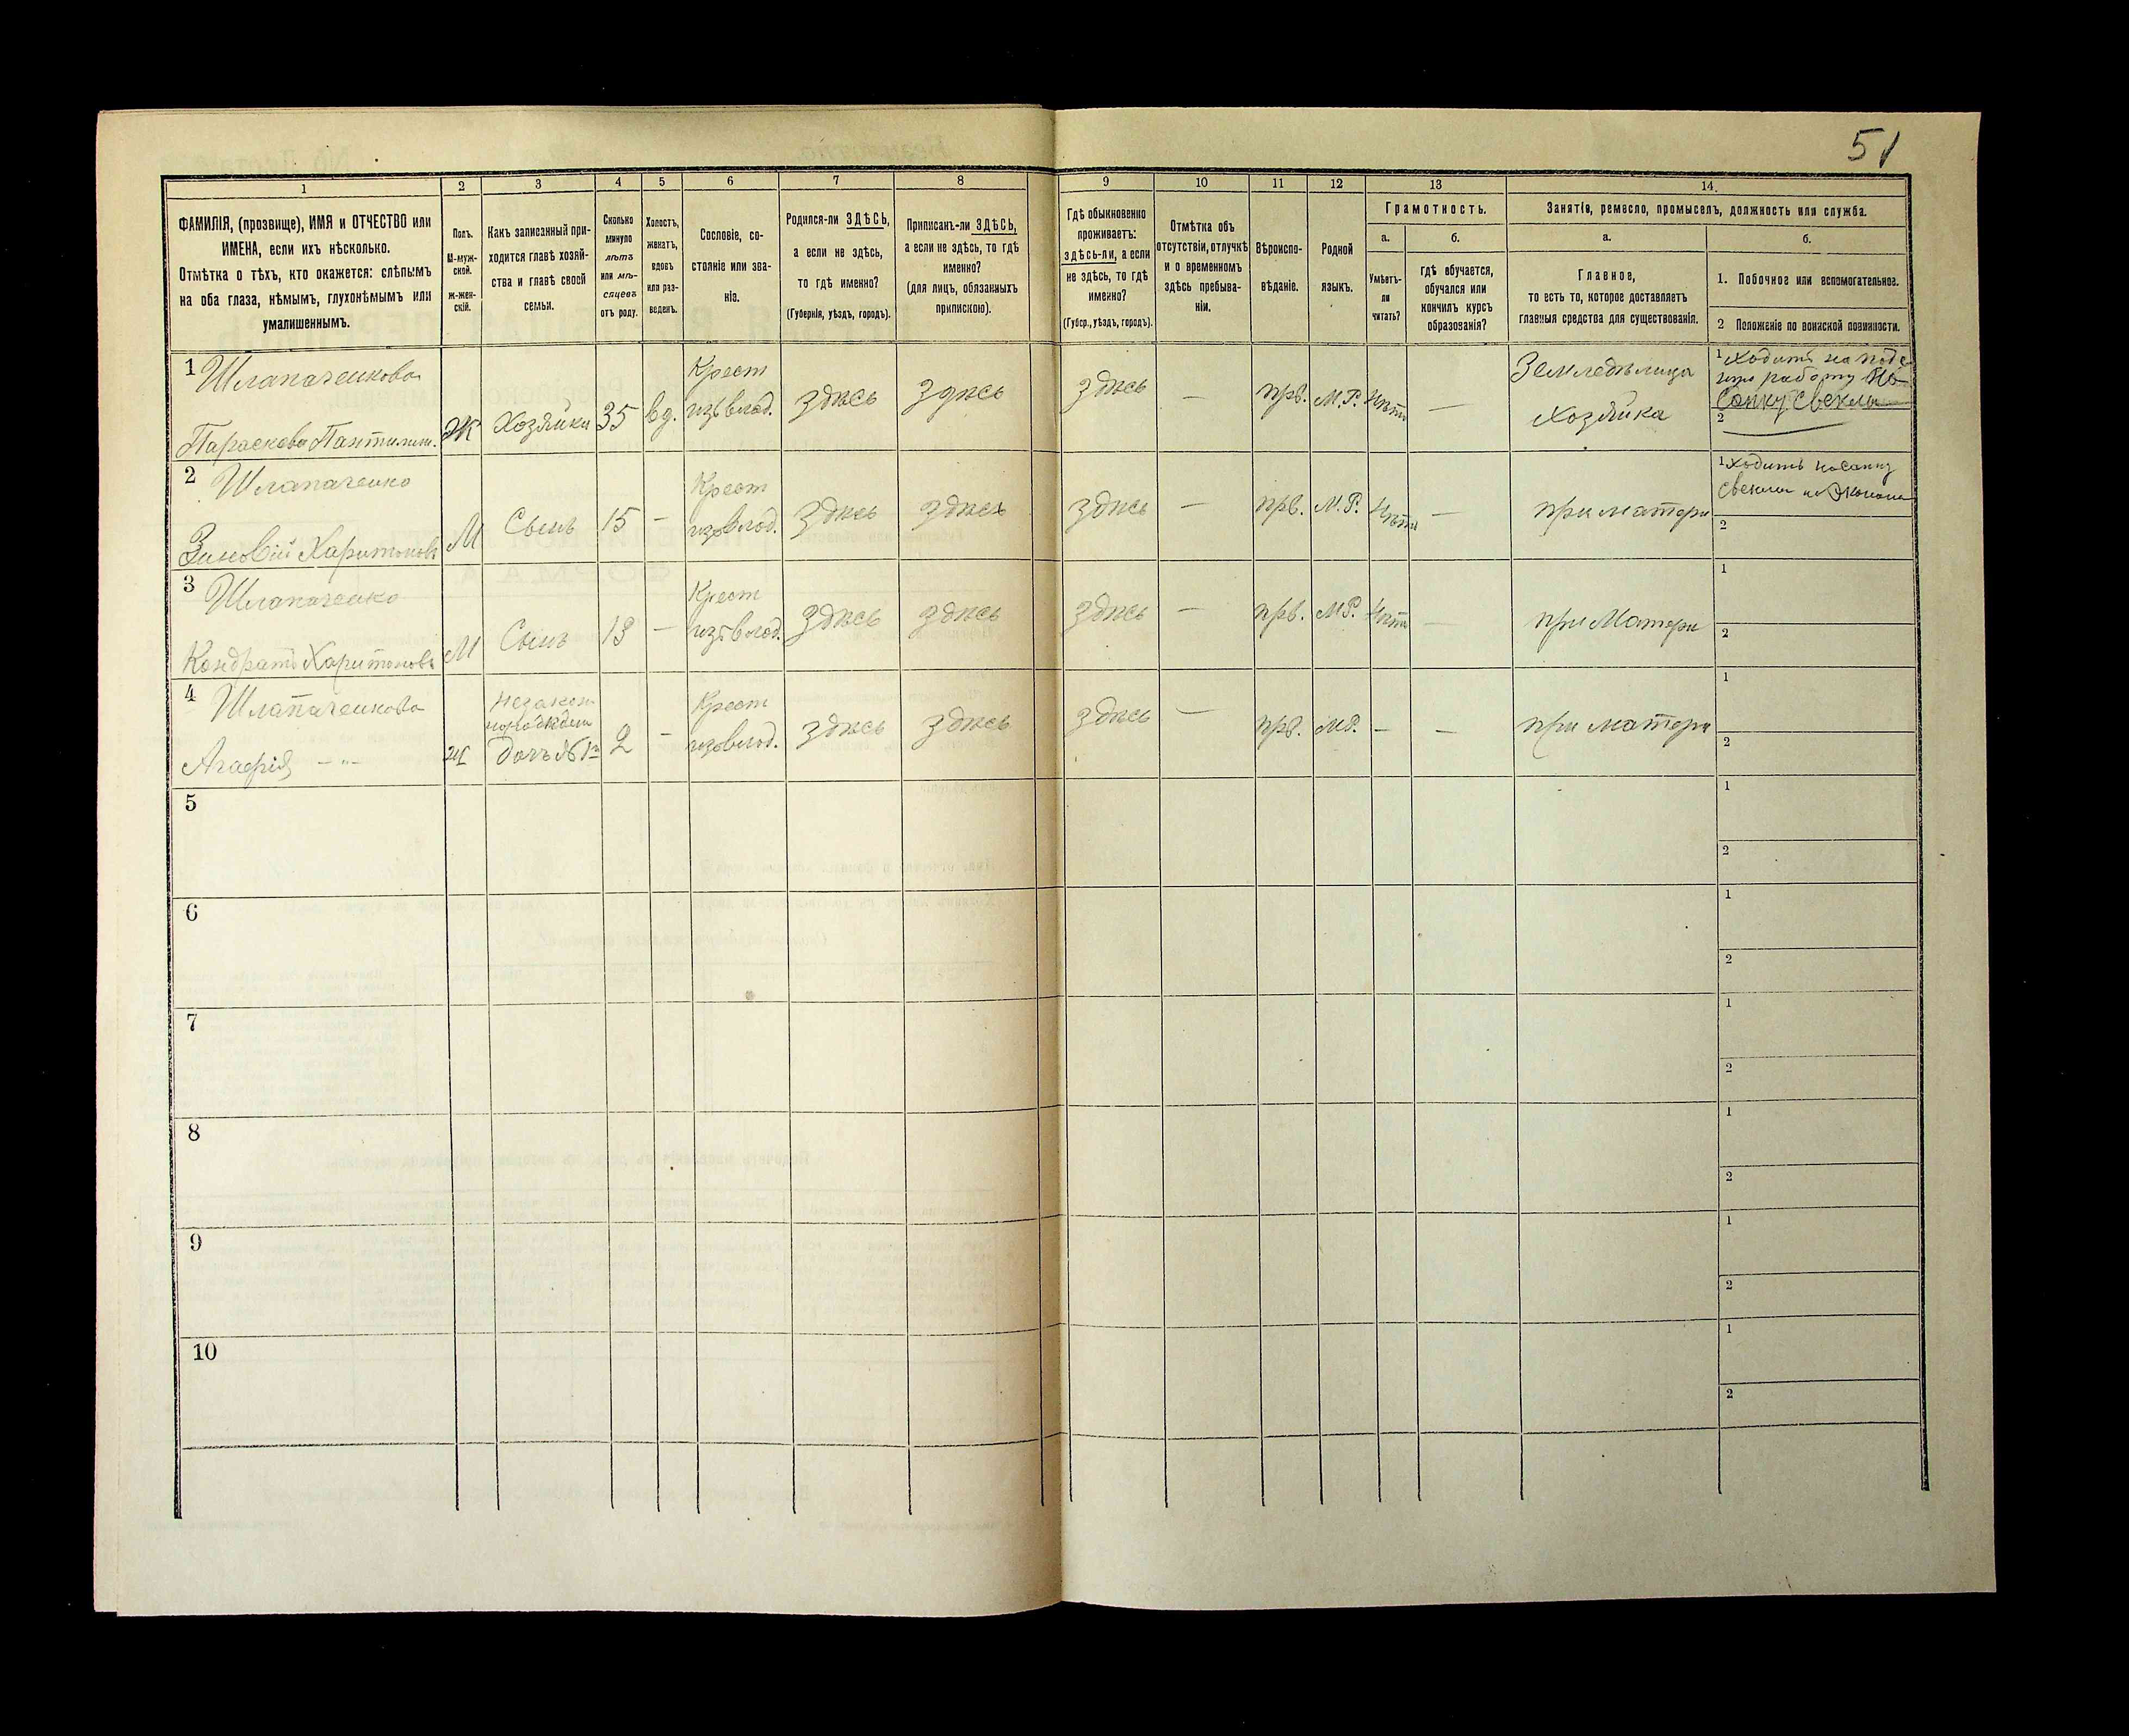 51
1 2 3 4 5 6 7 8 9 10 11 12 13 14.
ФАМИЛІЯ, (прозвище), ИМЯ и ОТЧЕСТВО или
ИМЕНА, если ихъ нѣсколько.
Отмѣтка о тѣхъ, кто окажется: слѣпымъ
на оба глаза, нѣмымъ, глухонѣмымъ или
умалишеннымъ.
Полъ.
М-муж-
ской.
ж-жен-
скій.
Какъ записанный при-
ходится главѣ хозяй-
ства и главѣ своей
семьи.
Сколько
минуло
лѣтъ
или мѣ-
сяцевъ
отъ роду.
Холостъ,
женатъ,
вдовъ
или раз-
веденъ.
Сословіе, со-
стояніе или зва-
ніе.
Родился-ли ЗДѢСЬ,
а если не здѣсь,
то гдѣ именно?
(Губернія, уѣздъ, городъ).
Приписанъ-ли ЗДѢСЬ,
а если не здѣсь, то гдѣ
именно?
(для лицъ, обязанныхъ
припискою).
Гдѣ обыкновенно
проживаетъ:
здѣсь-ли, а если
не здѣсь, то гдѣ
именно?
(Губер., уѣздъ, городъ).
Отмѣтка объ
отсутствіи, отлучкѣ
и о временномъ
здѣсь пребыва-
ніи.
Вѣроиспо-
вѣданіе.
Родной
языкъ.
Грамотность.
а.
Умѣетъ-
ли
читать?
б.
гдѣ обучается,
обучался или
кончилъ курсъ
образованія?
Занятіе, ремесло, промыселъ, должность или служба.
а.
Главное,
то есть то, которое доставляетъ
главныя средства для существованія.
б.
1. Побочное или вспомогательное.
2 Положеніе по воинской повинности.
1 Шлапаченкова
Параскева Пантилим.
Ж
Хозяйка
35
вд.
Крест
изъ влад.
здѣсь
здѣсь
здѣсь
—
прв.
М.Р.
Нѣтъ
—
Земледѣлица
Хозяйка
1 Ходитъ на
работу на
Сапку Свеклы
2
2 Шлапаченко
Зиновій Харитоновъ
М
Сынъ
15
—
Крест
изъ влад.
здѣсь
здѣсь
здѣсь
—
прв.
М.Р.
Нѣтъ
—
при матери
1 Ходитъ на Сапку
Свеклы
2
3 Шлапаченко
Кондратъ Харитоновъ
М
Сынъ
13
—
Крест
изъ влад.
здѣсь
здѣсь
здѣсь
—
прв.
М.Р.
Нѣтъ
—
при Матери
1
2
4 Шлапаченкова
Агафія — " —
Ж
Незакон
норожден
Дочь № 1й
2
—
Крест
изъ влад.
здѣсь
здѣсь
здѣсь
—
прв.
М.Р.
—
—
при матери
1
2
5
1
2
6
1
2
7
1
2
8
1
2
9
1
2
10
1
2